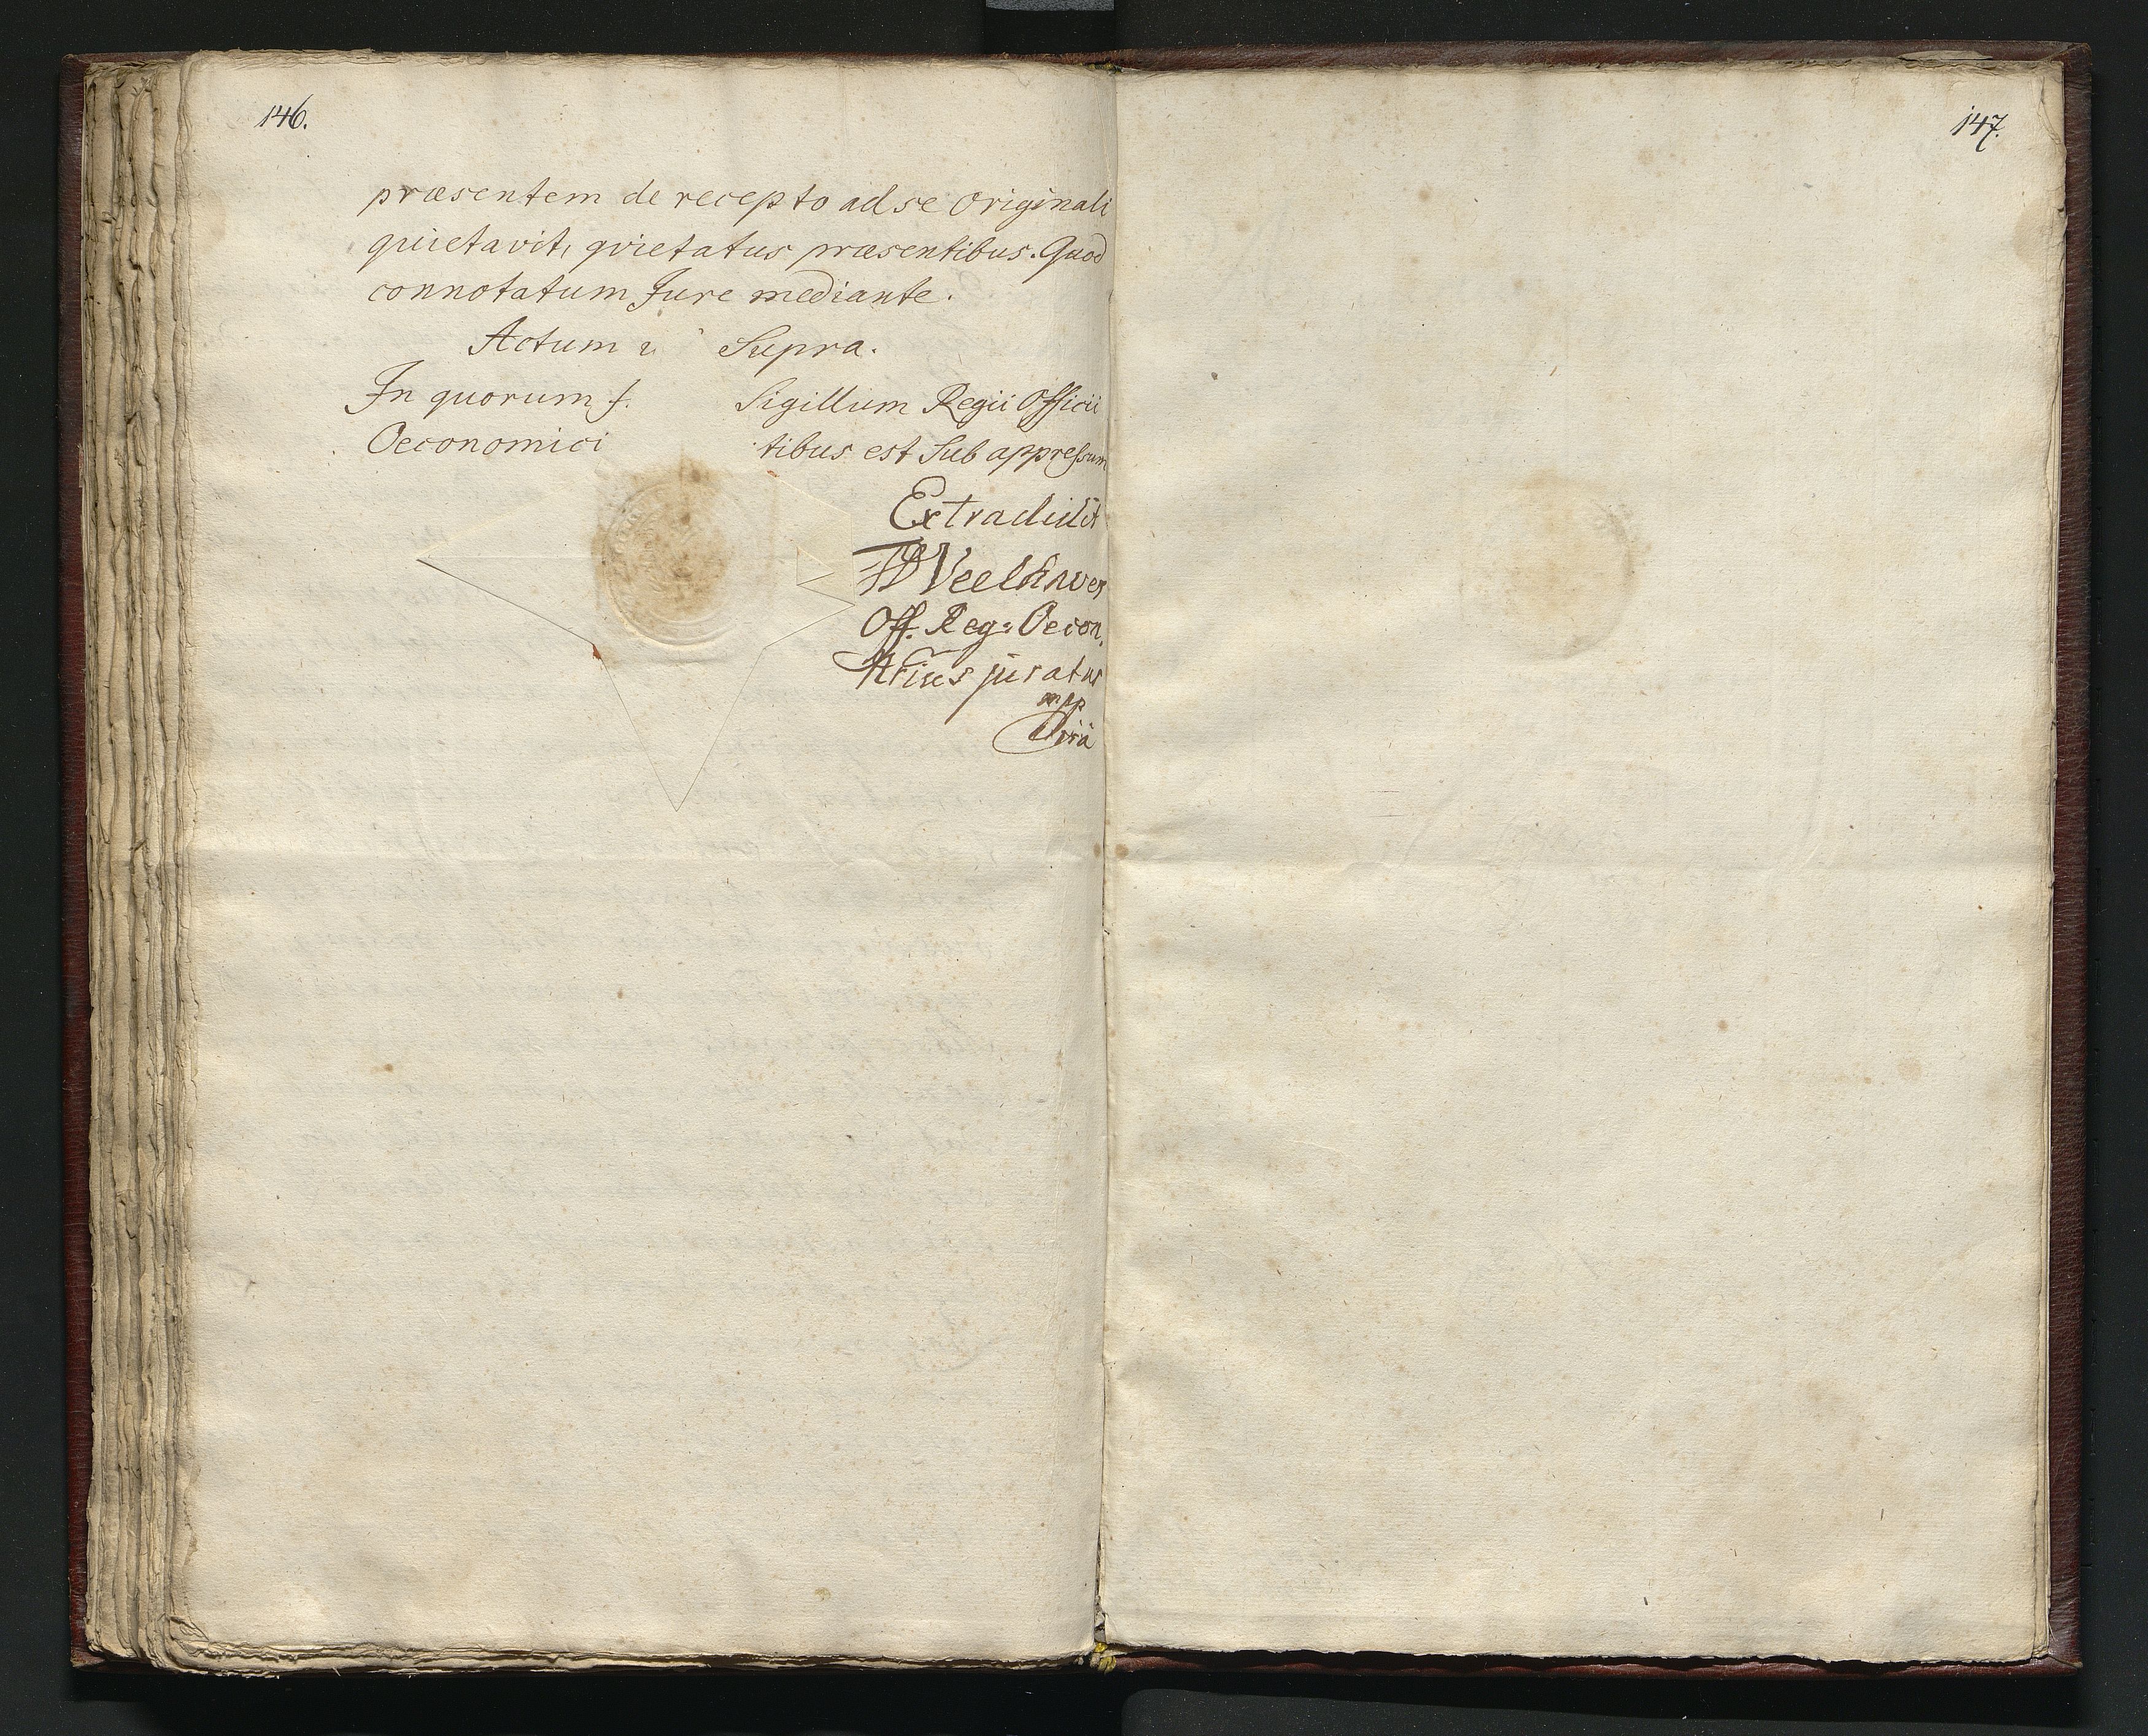 146.
præsentem de recepto ad se Originali
quietavit, qvietatus præsentibus. Quod
connotatum Jure mediante.
Actum Supra.
In quorum f. Sigillum Regii Officii
Oeconomici tibus est Sub appressum
Extradidit
Off. Reg: Oecon.
juratus
mpp
147.